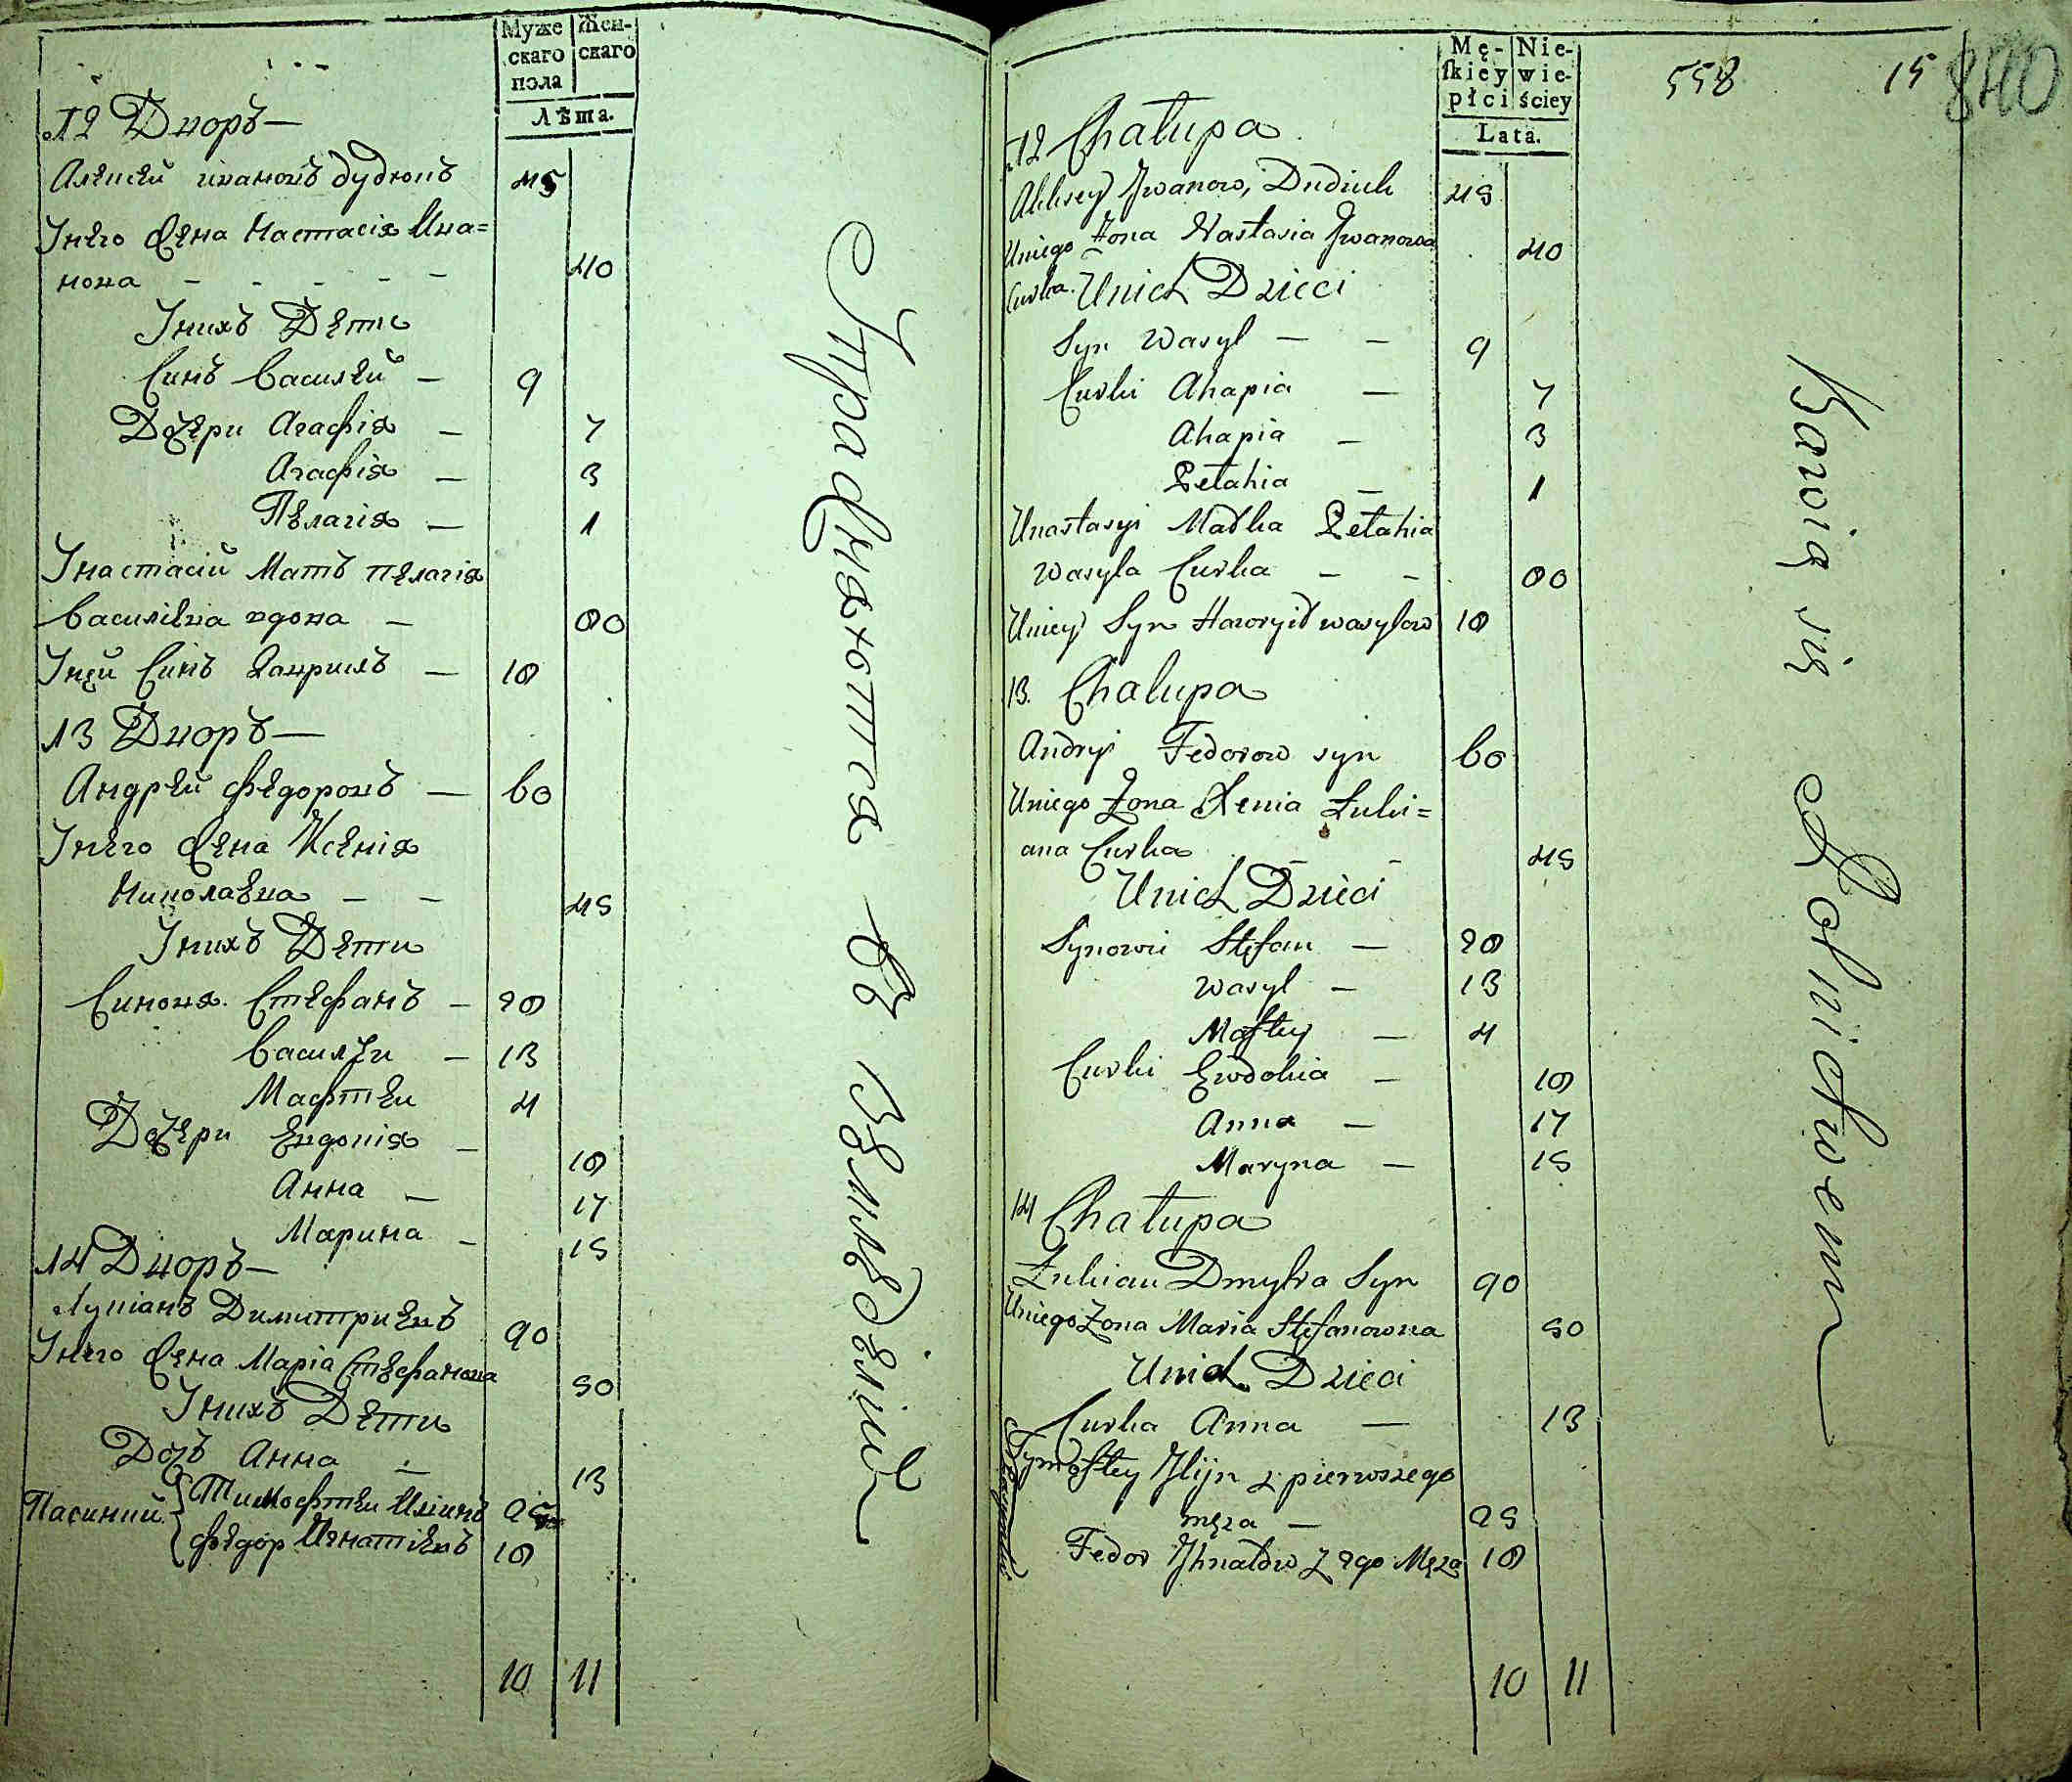 Муже
скаго
пола
Жен-
скаго
Лѣта.
12 Дворъ —
Алексей ивановъ дудюкъ 45
Унего жена Настасія Ива=
нова — 40
Унихъ Дети
Синъ Василей — 9
Дочери Агафія — 7
Агафія — 3
Пелагія — 1
Унастасіи Мать пелагія
Василіва вдова — 80
Унеи Синъ Гаврилъ — 18
13 Дворъ —
Андрей Федоровъ — 60
Унего жена Ксенія
Николаевна — 45
Унихъ Дети
Синовя Стефанъ — 28
Василеи — 13
Мафтеи 4
Дочери Евдокія — 18
Анна — 17
Марина — 15
14 Дворъ —
Лукіанъ Димитриевъ 90
Унего жена Маріа Стефанова 50
Унихъ Дети
Дочь Анна 13
Пасинки Тимофтеи Илиинъ 25
Федор Игнатіевъ 18
10 11
Упражняются въ Земледѣліи
Mę-
skiey
płci
Nie-
wie-
ściey
Lata.
558 15 840
12 Chałupa
Alexey Jwanow, Dudiuk 45
Uniego Żona Nastasia Jwanowa 40
Curka. Unich Dzieci
Syn Wasyl — — 9
Curki Ahapia — 7
Ahapia — 3
Pełahia — 1
Unastasyi Matka Pełahia
Wasyla Curka — — 80
Unieyi Syn Hawryił wasylow 18
13. Chałupa
Andryi Fedorow syn 60
Uniego Żona Xenia Łuki=
ana Curka — — 45
Unich Dzieci
Synowie Stefan — 28
Wasyl — 13
Maftey — 4
Curki Ewdokia — 18
Anna — 17
Maryna — 15
14 Chałupa
Łukian Dmytra Syn 90
Uniego Żona Maria Stefanowna 50
Unich Dzieci
Curka Anna — 13
Tymoftey Jlijn z pierwszego
męża — 25
Fedor Jhnatow z 2go Męża 18
10 11
Bawią się Rolnictwem